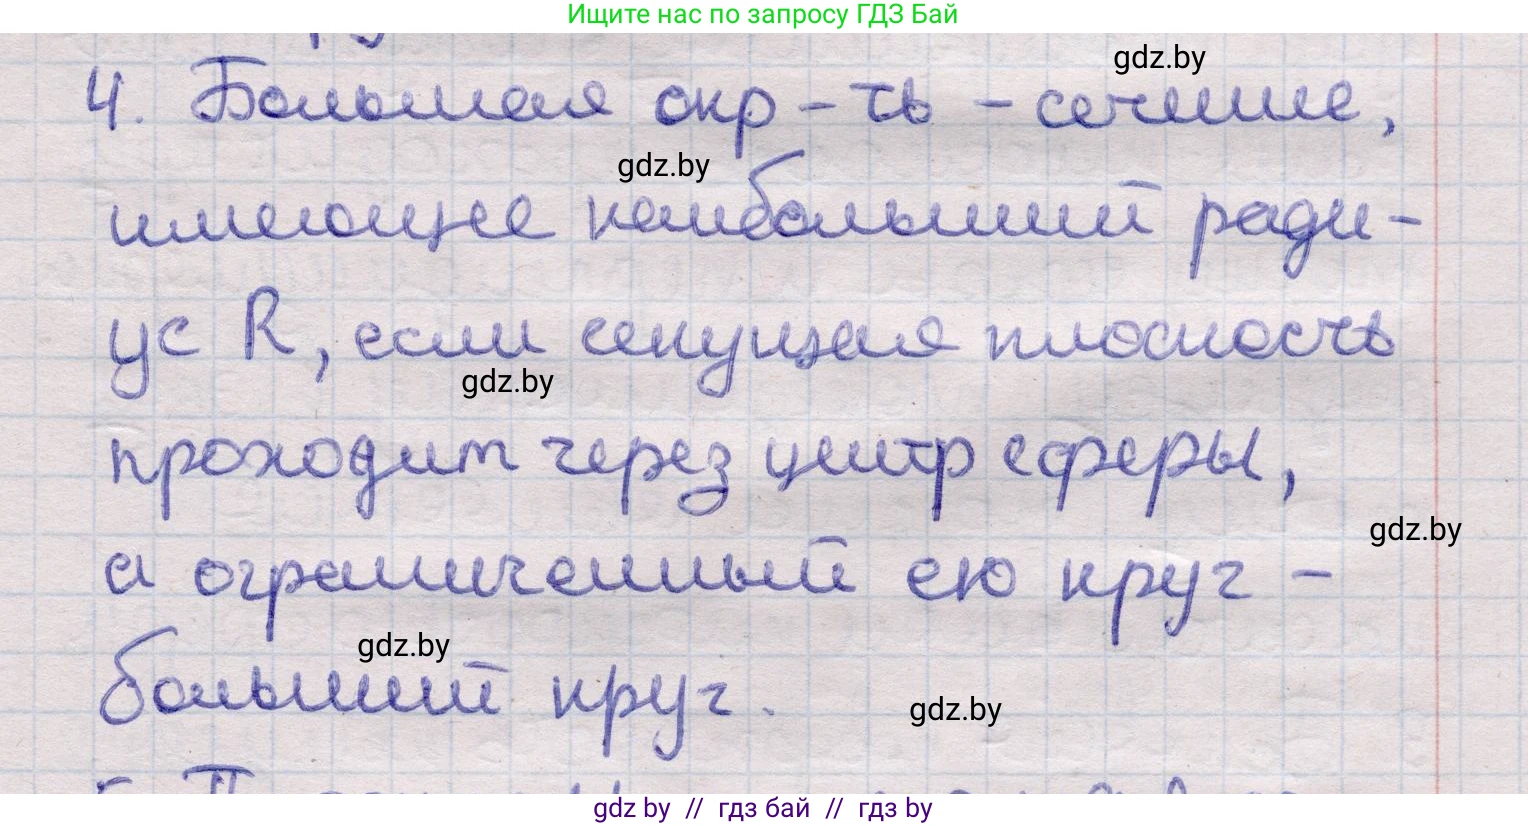 Ищите нас по запросу ГДЗ Бай
gdz.by
4. Большая окр-ть - сечение,
gdz.by
имеющее наибольший ради-
ус R, если секущая плоскость
gdz.by
проходит через центр сферы,
gdz.by
а ограниченный ею круг -
gdz.by
больший круг.
gdz.by
gdz by // гдз бай // гдз by